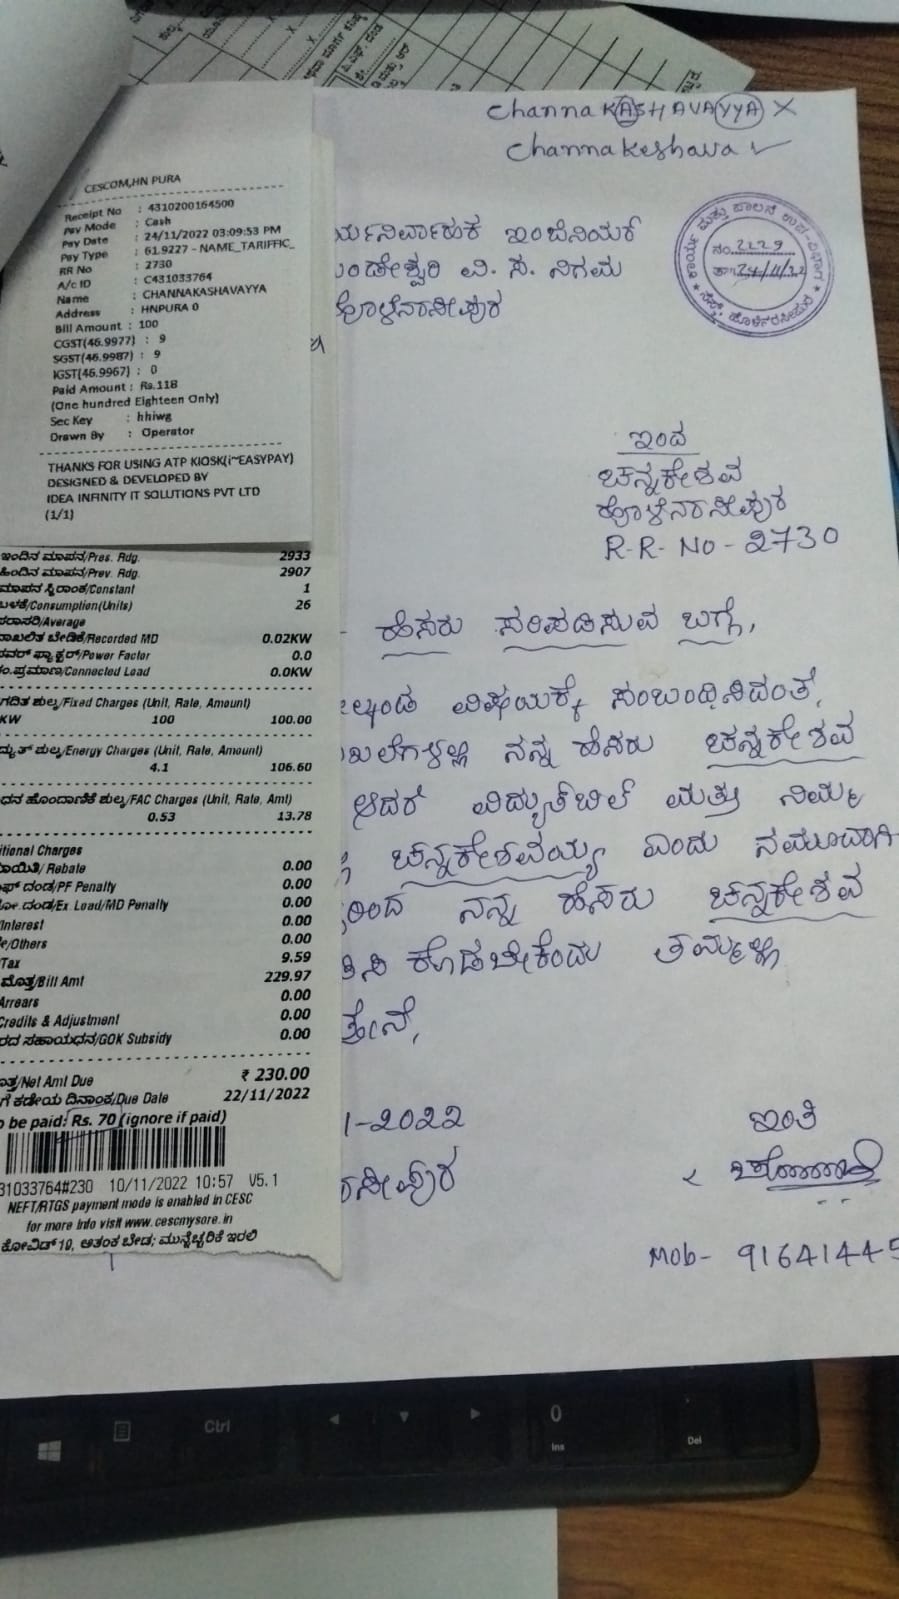 Channa KASHAVAYYA X
Channa Keshava ✓
CESCOM,HN PURA
Receipt No : 4310200164500
Pay Mode : Cash
Pay Date : 24/11/2022 03:09:53 PM
Pay Type : 61.9227 - NAME_TARIFFIC_
RR No : 2730
A/c ID : C431033764
Name : CHANNAKASHAVAYYA
Address : HNPURA 0
Bill Amount : 100
CGST(46.9977) : 9
SGST(46.9987) : 9
IGST(46.9967) : 0
Paid Amount : Rs.118
(One hundred Eighteen Only)
Sec Key : hhiwg
Drawn By : Operator
THANKS FOR USING ATP KIOSK(i~EASYPAY)
DESIGNED & DEVELOPED BY
IDEA INFINITY IT SOLUTIONS PVT LTD
(1/1)
ಇಂದಿನ ಮಾಪನ/Pres. Rdg. 2933
ಹಿಂದಿನ ಮಾಪನ/Prev. Rdg. 2907
ಮಾಪನ ಸ್ಥಿರಾಂಕ/Constant 1
ಬಳಕೆ/Consumption(Units) 26
ಸರಾಸರಿ/Average
ದಾಖಲಿತ ಬೇಡಿಕೆ/Recorded MD 0.02KW
ಪವರ್ ಫ್ಯಾಕ್ಟರ್/Power Factor 0.0
ಸಂ.ಪ್ರಮಾಣ/Connected Load 0.0KW
ಗದಿತ ಶುಲ್ಕ/Fixed Charges (Unit, Rate, Amount)
KW 100 100.00
ದ್ಯುತ್ ಶುಲ್ಕ/Energy Charges (Unit, Rate, Amount)
4.1 106.60
ಧನ ಹೊಂದಾಣಿಕೆ ಶುಲ್ಕ/FAC Charges (Unit, Rate, Amt)
0.53 13.78
itional Charges
ಯಿತಿ/ Rebate 0.00
ಎಫ್ ದಂಡ/PF Penalty 0.00
ಲೋ.ದಂಡ/Ex Load/MD Penalty 0.00
/Interest 0.00
/Others 0.00
Tax 9.59
ಮೊತ್ತ/Bill Amt 229.97
Arrears 0.00
Credits & Adjustment 0.00
ರದ ಸಹಾಯಧನ/GOK Subsidy 0.00
ತ್ತ/Net Amt Due ₹ 230.00
ಗೆ ಕಡೇಯ ದಿನಾಂಕ/Due Date 22/11/2022
o be paid: Rs. 70 (ignore if paid)
31033764#230 10/11/2022 10:57 V5.1
NEFT/RTGS payment mode is enabled in CESC
for more info visit www.cescmysore.in
ಕೋವಿಡ್ 19, ಆತಂಕ ಬೇಡ; ಮುನ್ನೆಚ್ಚರಿಕೆ ಇರಲಿ
ರ್ಯನಿರ್ವಾಹಕ ಇಂಜಿನಿಯರ್
ಂಡೇಶ್ವರಿ ವಿ. ಸ. ನಿಗಮ
ಹೊಳೆನರಸೀಪುರ
ಕಾರ್ಯ ಮತ್ತು ಪಾಲನೆ ಉಪ-ವಿಭಾಗ
ನಂ. 2229
ತಾ: 24/11/22
ಹೊಳೆನರಸೀಪುರ
ಇಂದ
ಚನ್ನಕೇಶವ
ಹೊಳೆನರಸೀಪುರ
R-R- No - 2730
- ಹೆಸರು ಸರಿಪಡಿಸುವ ಬಗ್ಗೆ,
ಲ್ಕಂಡ ವಿಷಯಕ್ಕೆ ಸಂಬಂಧಿಸಿದಂತೆ,
ಖಲೆಗಳಲ್ಲಿ ನನ್ನ ಹೆಸರು ಚನ್ನಕೇಶವ
ಆದರೆ ವಿದ್ಯುತ್‌ಬಿಲ್ ಮತ್ತು ನಿಮ್ಮ
ಲ್ಲಿ ಚನ್ನಕೇಶವಯ್ಯ ಎಂದು ನಮೂದಾಗಿ
ರಿಂದ ನನ್ನ ಹೆಸರು ಚನ್ನಕೇಶವ
ತಿಸಿ ಕೊಡಬೇಕೆಂದು ತಮ್ಮಲ್ಲಿ
ತ್ತೇನೆ,
1-2022 ಇಂತಿ
ರಸೀಪುರ
Mob- 91641445
Ctrl
0
Ins
Del